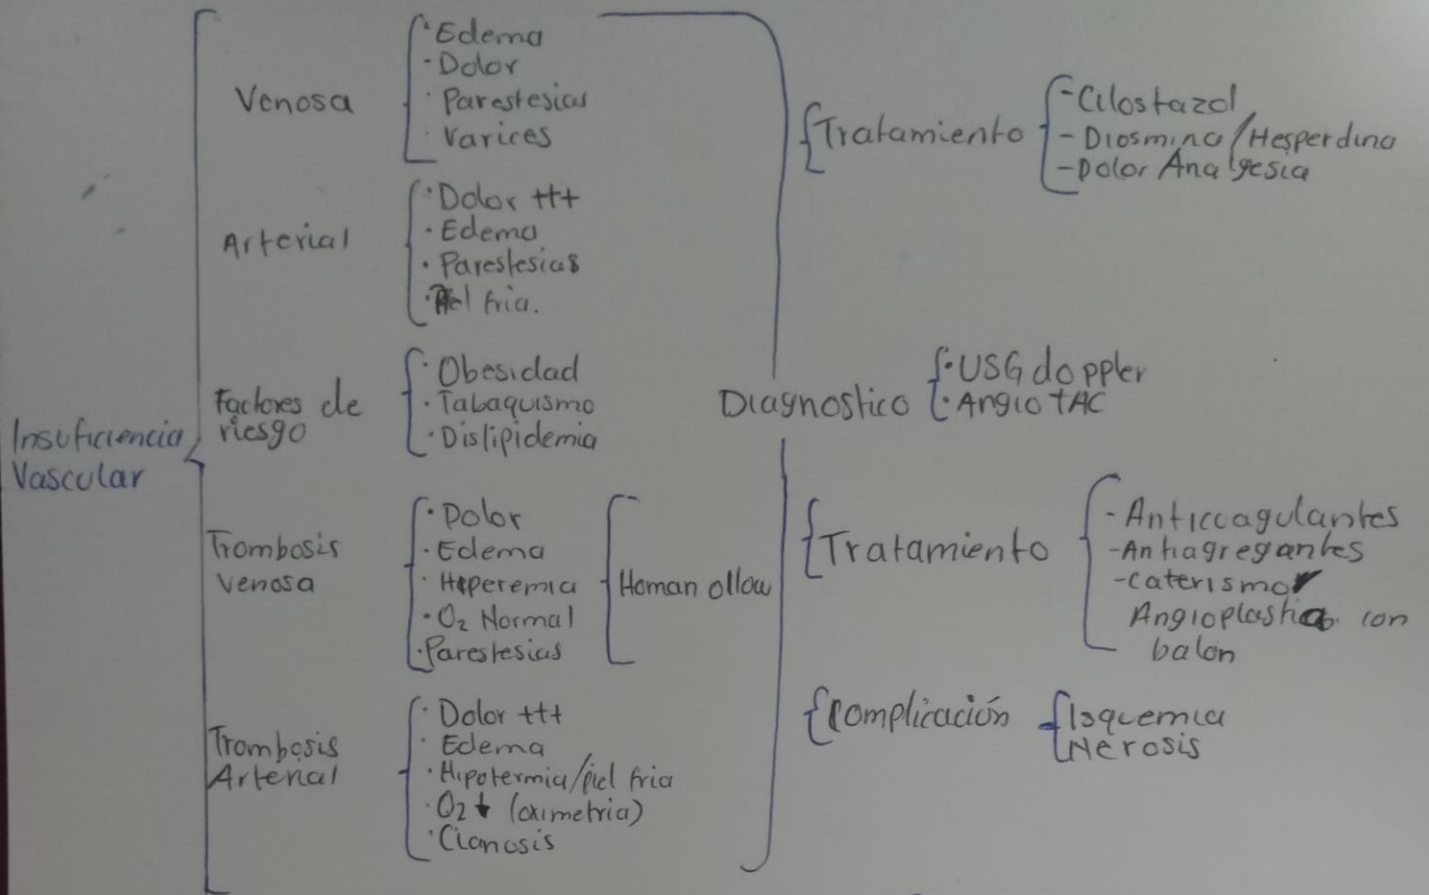 Insuficiencia
Vascular
Venosa
· Edema
· Dolor
· Parestesias
· Varices
Arterial
· Dolor +++
· Edema
· Parestesias
· Piel fria.
Factores de
riesgo
· Obesidad
· Tabaquismo
· Dislipidemia
Trombosis
Venosa
· Dolor
· Edema
· Hiperemia
· O2 Normal
· Parestesias
Homan ollow
Trombosis
Arterial
· Dolor +++
· Edema
· Hipotermia/piel fria
· O2 ↓ (oximetria)
· Cianosis
Tratamiento
- Cilostazol
- Diosmina/Hesperdina
- Dolor Analgesia
Diagnostico
· USG doppler
· Angio TAC
Tratamiento
- Anticoagulantes
- Antiagregantes
- Caterismo
Angioplastia con
balon
Complicación
Isquemia
Nerosis